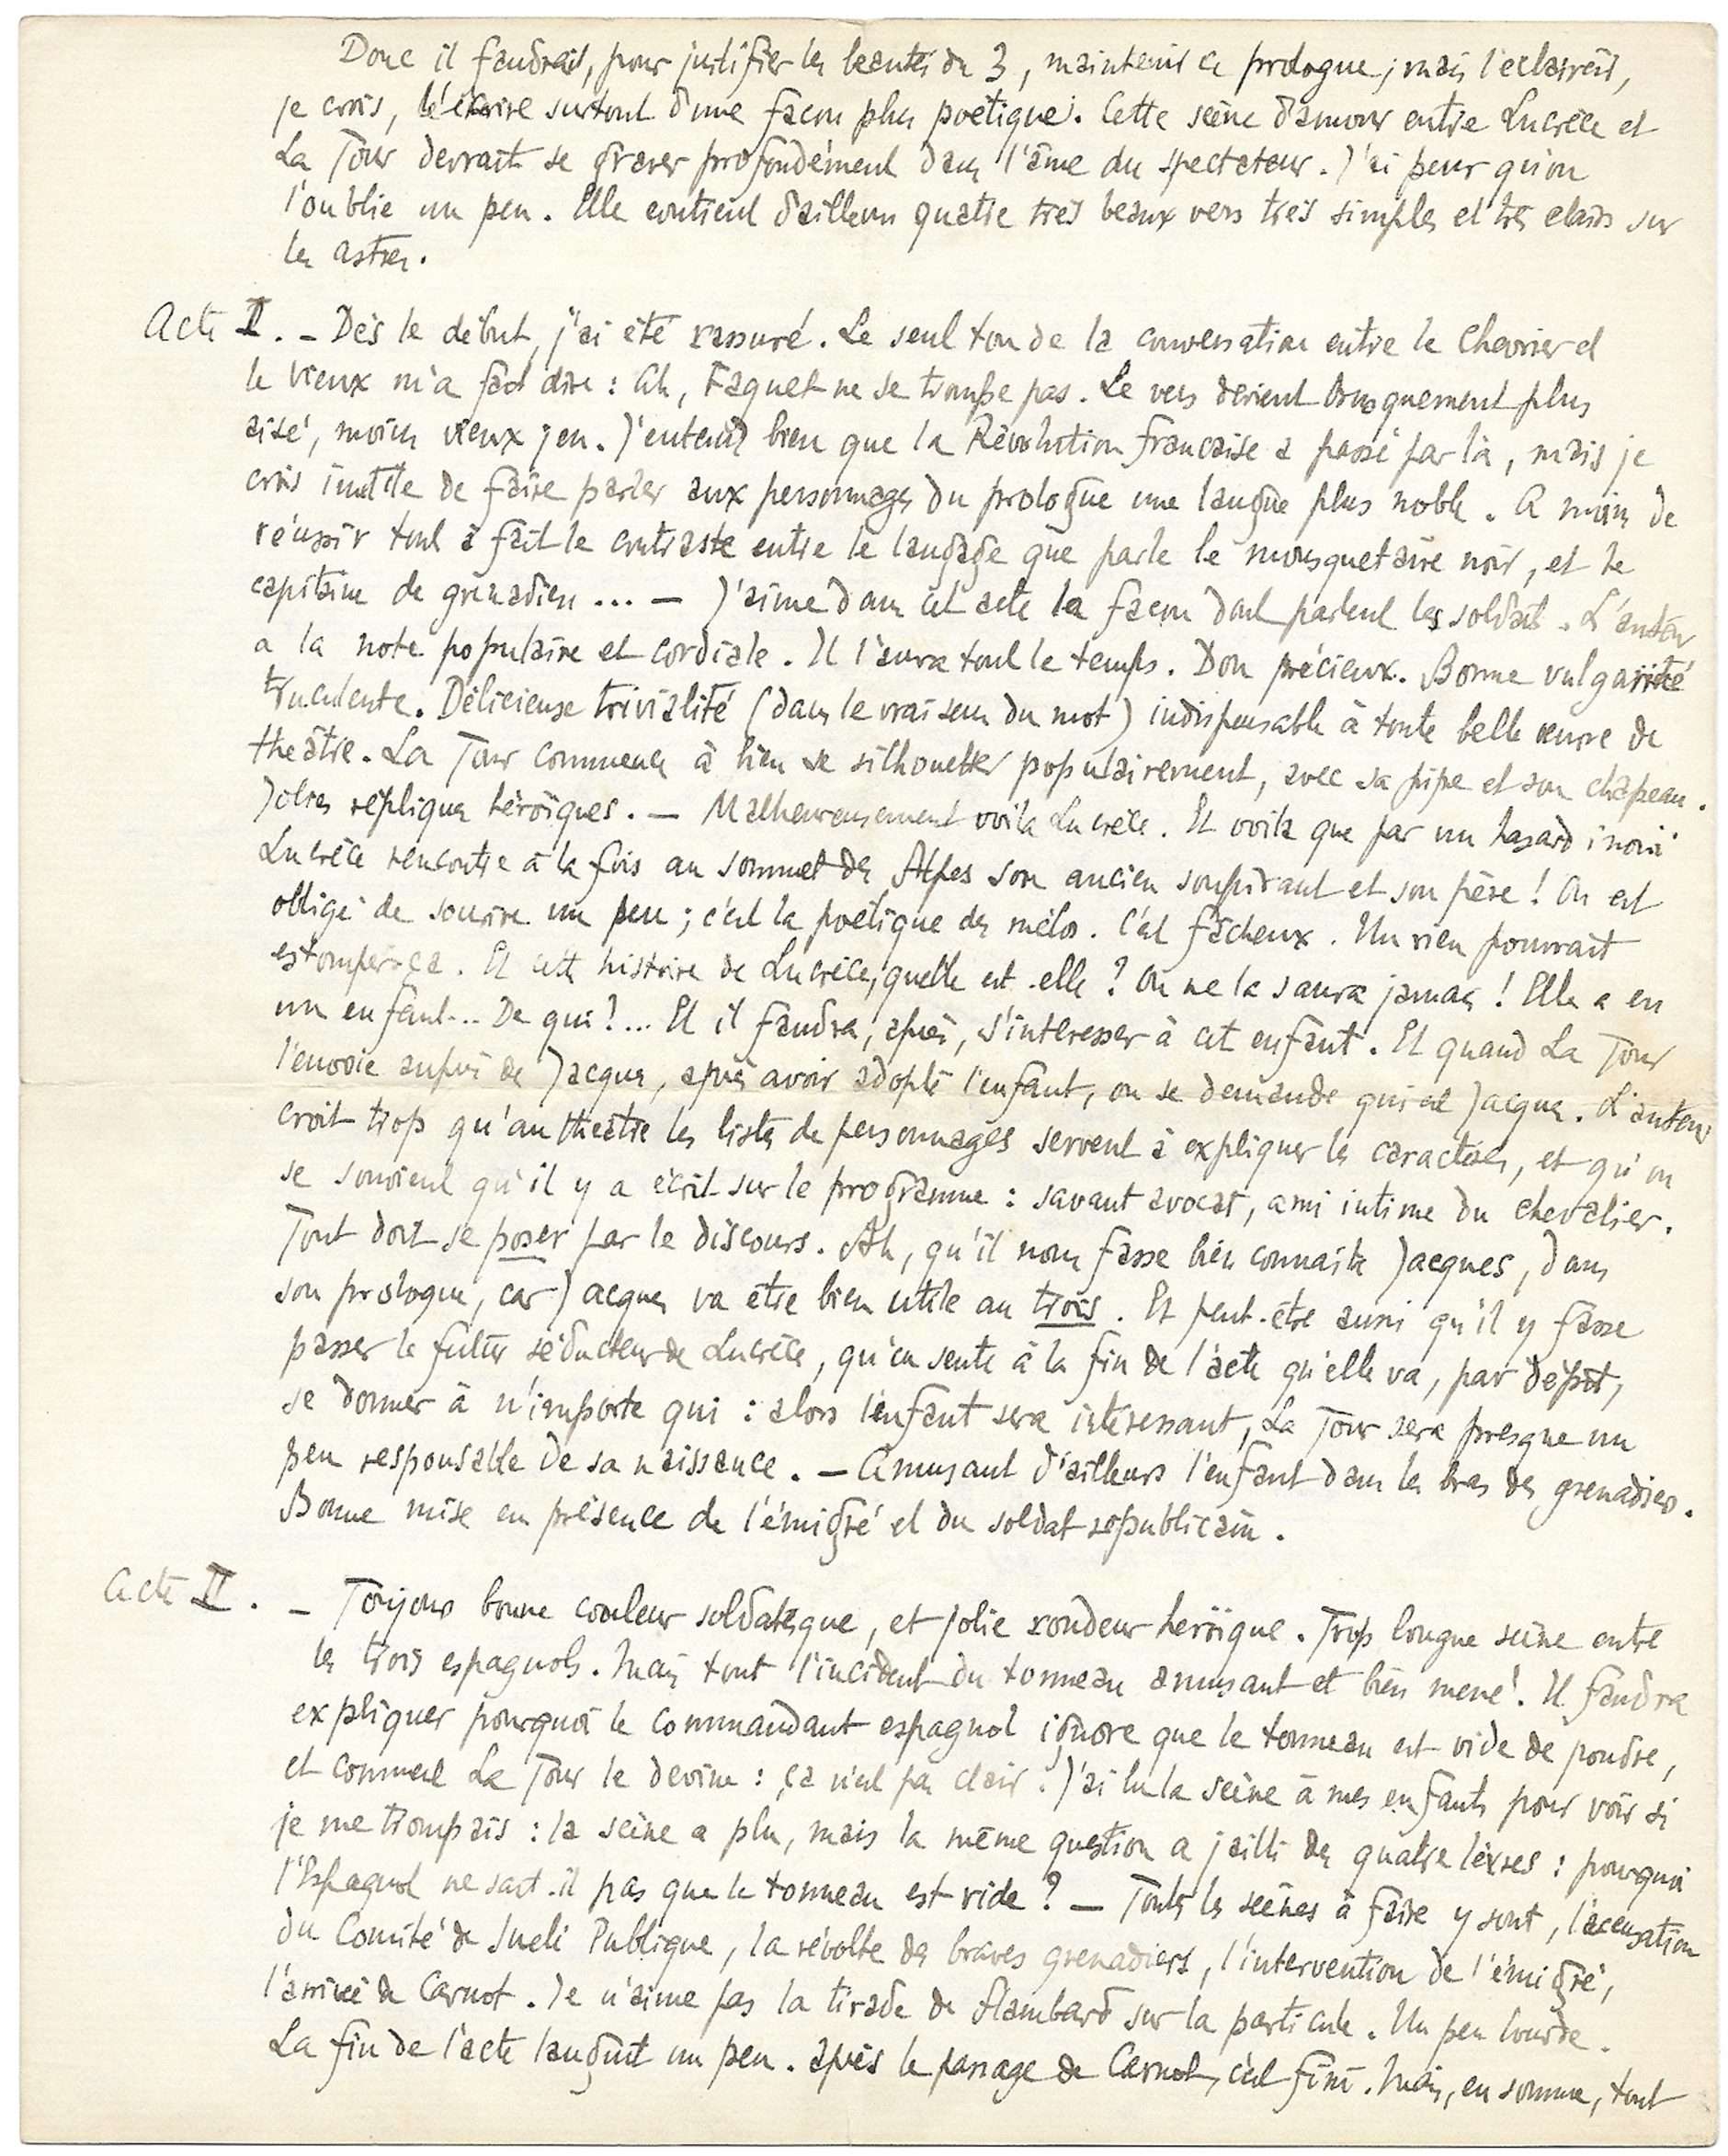 Donc il faudrait, pour justifier les beautés du 3, maintenir ce prologue ; mais l'éclaircir,
je crois, l'écrire surtout d'une façon plus poétique. Cette scène d'amour entre Lucrèce et
La Tour devrait se graver profondément dans l'âme du spectateur. J'ai peur qu'on
l'oublie un peu. Elle contient d'ailleurs quatre très beaux vers très simples et très clairs sur
les astres.
Acte I. – Dès le début, j'ai été rassuré. Le seul ton de la conversation entre le Chevrier et
le vieux m'a fait dire : Ah, Faguet ne se trompe pas. Le vers devient brusquement plus
aisé, moins vieux jeu. J'entends bien que la Révolution française a passé par là, mais je
crois inutile de faire parler aux personnages du prologue une langue plus noble. A moins de
réussir tout à fait le contraste entre le langage que parle le mousquetaire noir, et le
capitaine de grenadiers ... – J'aime dans cet acte la façon dont parlent les soldats. L'auteur
a la note populaire et cordiale. Il l'aura tout le temps. Don précieux. Bonne vulgarité
truculente. Délicieuse trivialité (dans le vrai sens du mot) indispensable à toute belle œuvre de
théâtre. La Tour commence à bien se silhouetter populairement, avec sa pipe et son chapeau.
Jolies répliques héroïques. – Malheureusement voilà Lucrèce. Et voilà que par un hasard inouï
Lucrèce rencontre à la fois au sommet des Alpes son ancien soupirant et son père ! On est
obligé de sourire un peu ; c'est la poétique des mélos. C'est fâcheux. Un rien pourrait
estomper ça. Et cette histoire de Lucrèce, quelle est-elle ? On ne la saura jamais ! Elle a eu
un enfant... De qui ?... Et il faudra, après, s'intéresser à cet enfant. Et quand La Tour
l'envoie auprès de Jacques, après avoir adopté l'enfant, on se demande qui est Jacques. L'auteur
croit trop qu'au théâtre les listes de personnages servent à expliquer les caractères, et qu'on
se souvient qu'il y a écrit sur le programme : savant avocat, ami intime du chevalier.
Tout doit se poser par le discours. Ah, qu'il nous fasse bien connaître Jacques, dans
son prologue, car Jacques va être bien utile au trois. Et peut-être aussi qu'il y fasse
passer le futur séducteur de Lucrèce, qu'on sente à la fin de l'acte qu'elle va, par dépit,
se donner à n'importe qui : alors l'enfant sera intéressant, La Tour sera presque un
peu responsable de sa naissance. – Amusant d'ailleurs l'enfant dans les bras des grenadiers.
Bonne mise en présence de l'émigré et du soldat républicain.
Acte II. – Toujours bonne couleur soldatesque, et jolie rondeur héroïque. Trop longue scène entre
les trois espagnols. Mais tout l'incident du tonneau amusant et bien mené. Il faudra
expliquer pourquoi le commandant espagnol ignore que le tonneau est vide de poudre,
et comment La Tour le devine : ça n'est pas clair. J'ai lu la scène à mes enfants pour voir si
je me trompais : la scène a plu, mais la même question a jailli des quatre lèvres : pourquoi
l'Espagnol ne sait-il pas que le tonneau est vide ? – Toutes les scènes à faire y sont, l'accusation
du Comité de Sureté Publique, la révolte des braves grenadiers, l'intervention de l'émigré,
l'arrivée de Carnot. Je n'aime pas la tirade de Flambard sur la particule. Un peu lourde.
La fin de l'acte languit un peu. après le passage de Carnot, c'est fini. Mais, en somme, tout